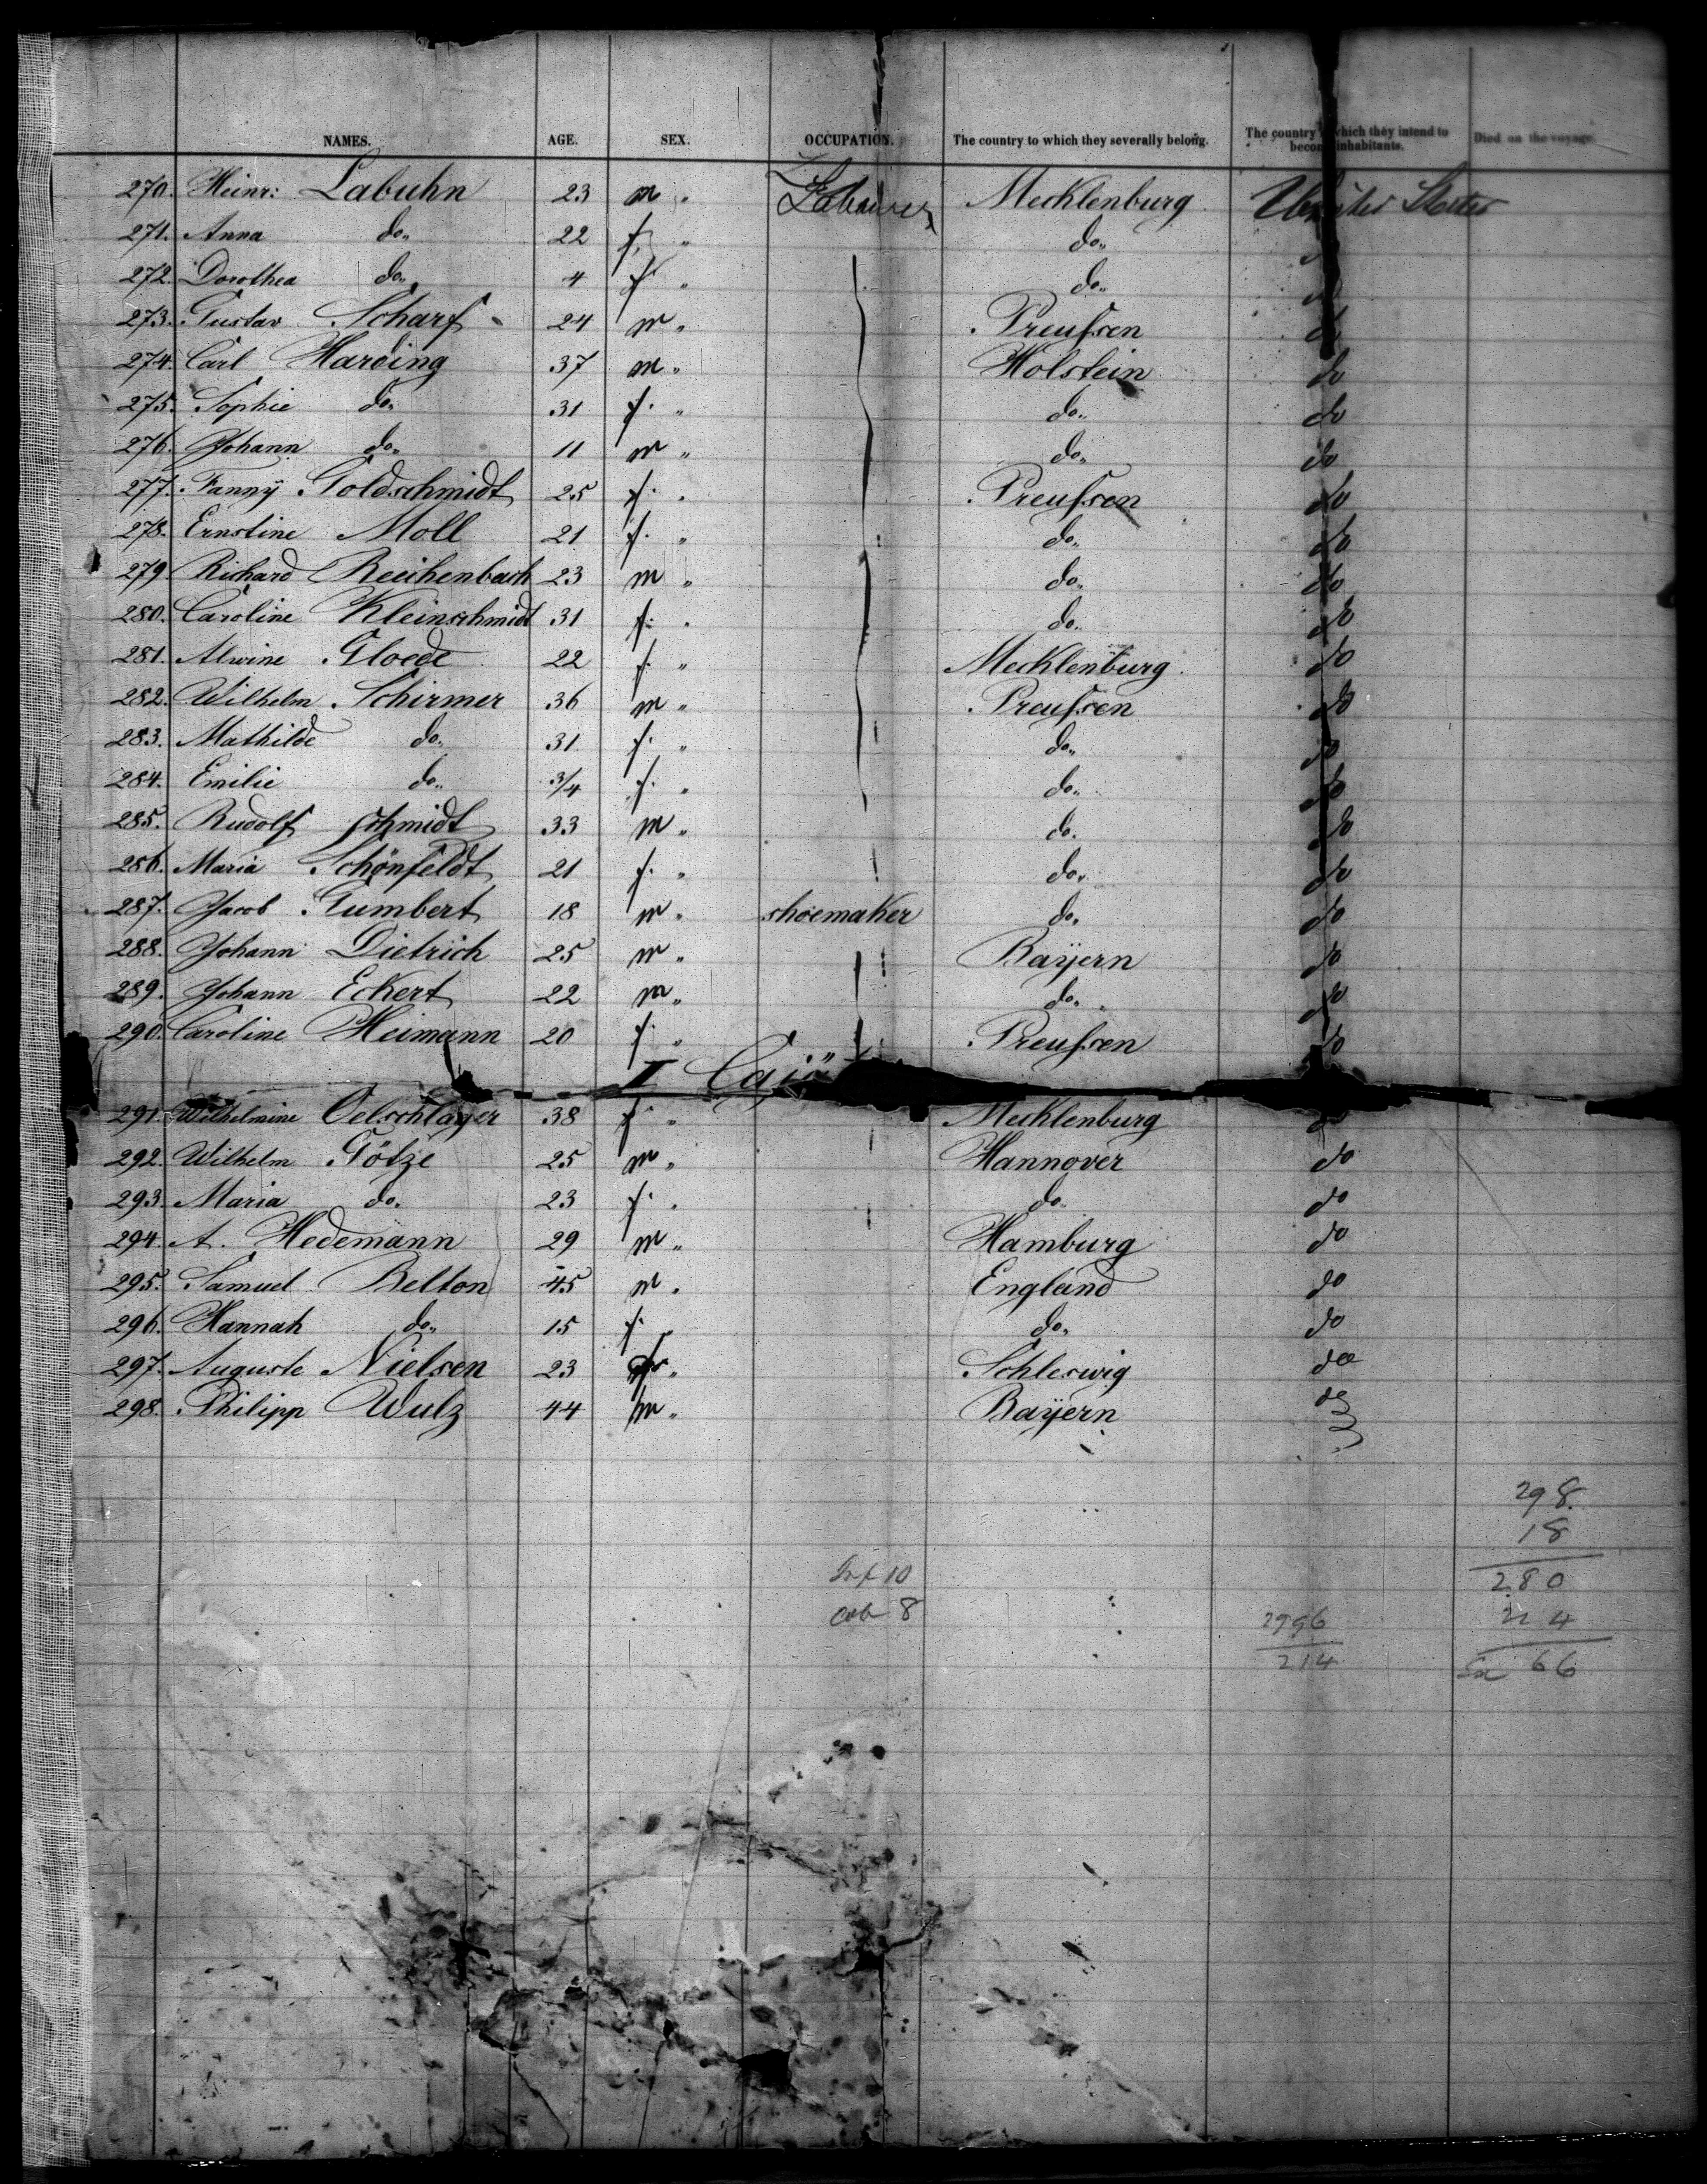 NAMES. AGE. SEX. OCCUPATION. The country to which they severally belong. The country which they intend to become inhabitants. Died on the voyage.
270. Heinr: Labuhn 23 m " Labourer Mecklenburg United States
271. Anna do. 22 f. " do.
272. Dorothea do. 4 f. " do.
273. Gustav Scharf 24 m " Preußen do
274. Carl Harding 37 m " Holstein do
275. Sophie do. 31 f. " do. do
276. Johann do. 11 m " do. do
277. Fanny Goldschmidt 25 f. " Preußen do
278. Ernstine Moll 21 f. " do. do
279. Richard Reichenbach 23 m " do. do
280. Caroline Kleinschmidt 31 f. " do. do
281. Alwine Gloede 22 f. " Mecklenburg do
282. Wilhelm Schirmer 36 m " Preußen do
283. Mathilde do. 31 f. " do. do
284. Emilie do. 3/4 f. " do. do
285. Rudolf Schmidt 33 m " do. do
286. Maria Schönfeldt 21 f. " do. do
287. Jacob Gumbert 18 m " shoemaker do. do
288. Johann Dietrich 25 m " Bayern do
289. Johann Eckert 22 m " do. do
290. Caroline Heimann 20 f. " Preußen do
I
291. Wilhelmine Oelschlager 38 f. " Mecklenburg do
292. Wilhelm Götze 25 m " Hannover do
293. Maria do. 23 f. " do. do
294. A. Hedemann 29 m " Hamburg do
295. Samuel Belton 45 m " England do
296. Hannah do. 15 f. " do. do
297. Auguste Nielsen 23 " Schleswig do
298. Philipp Wulz 44 m " Bayern do
298.
18
Inf 10 280
8 2996 4
214 66